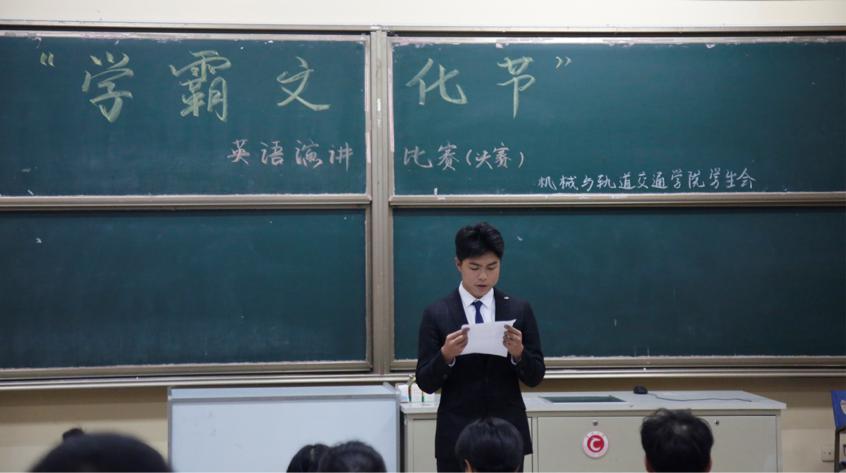 “学霸文化节”
英语演讲比赛(决赛)
机械与轨道交通学院学生会
C